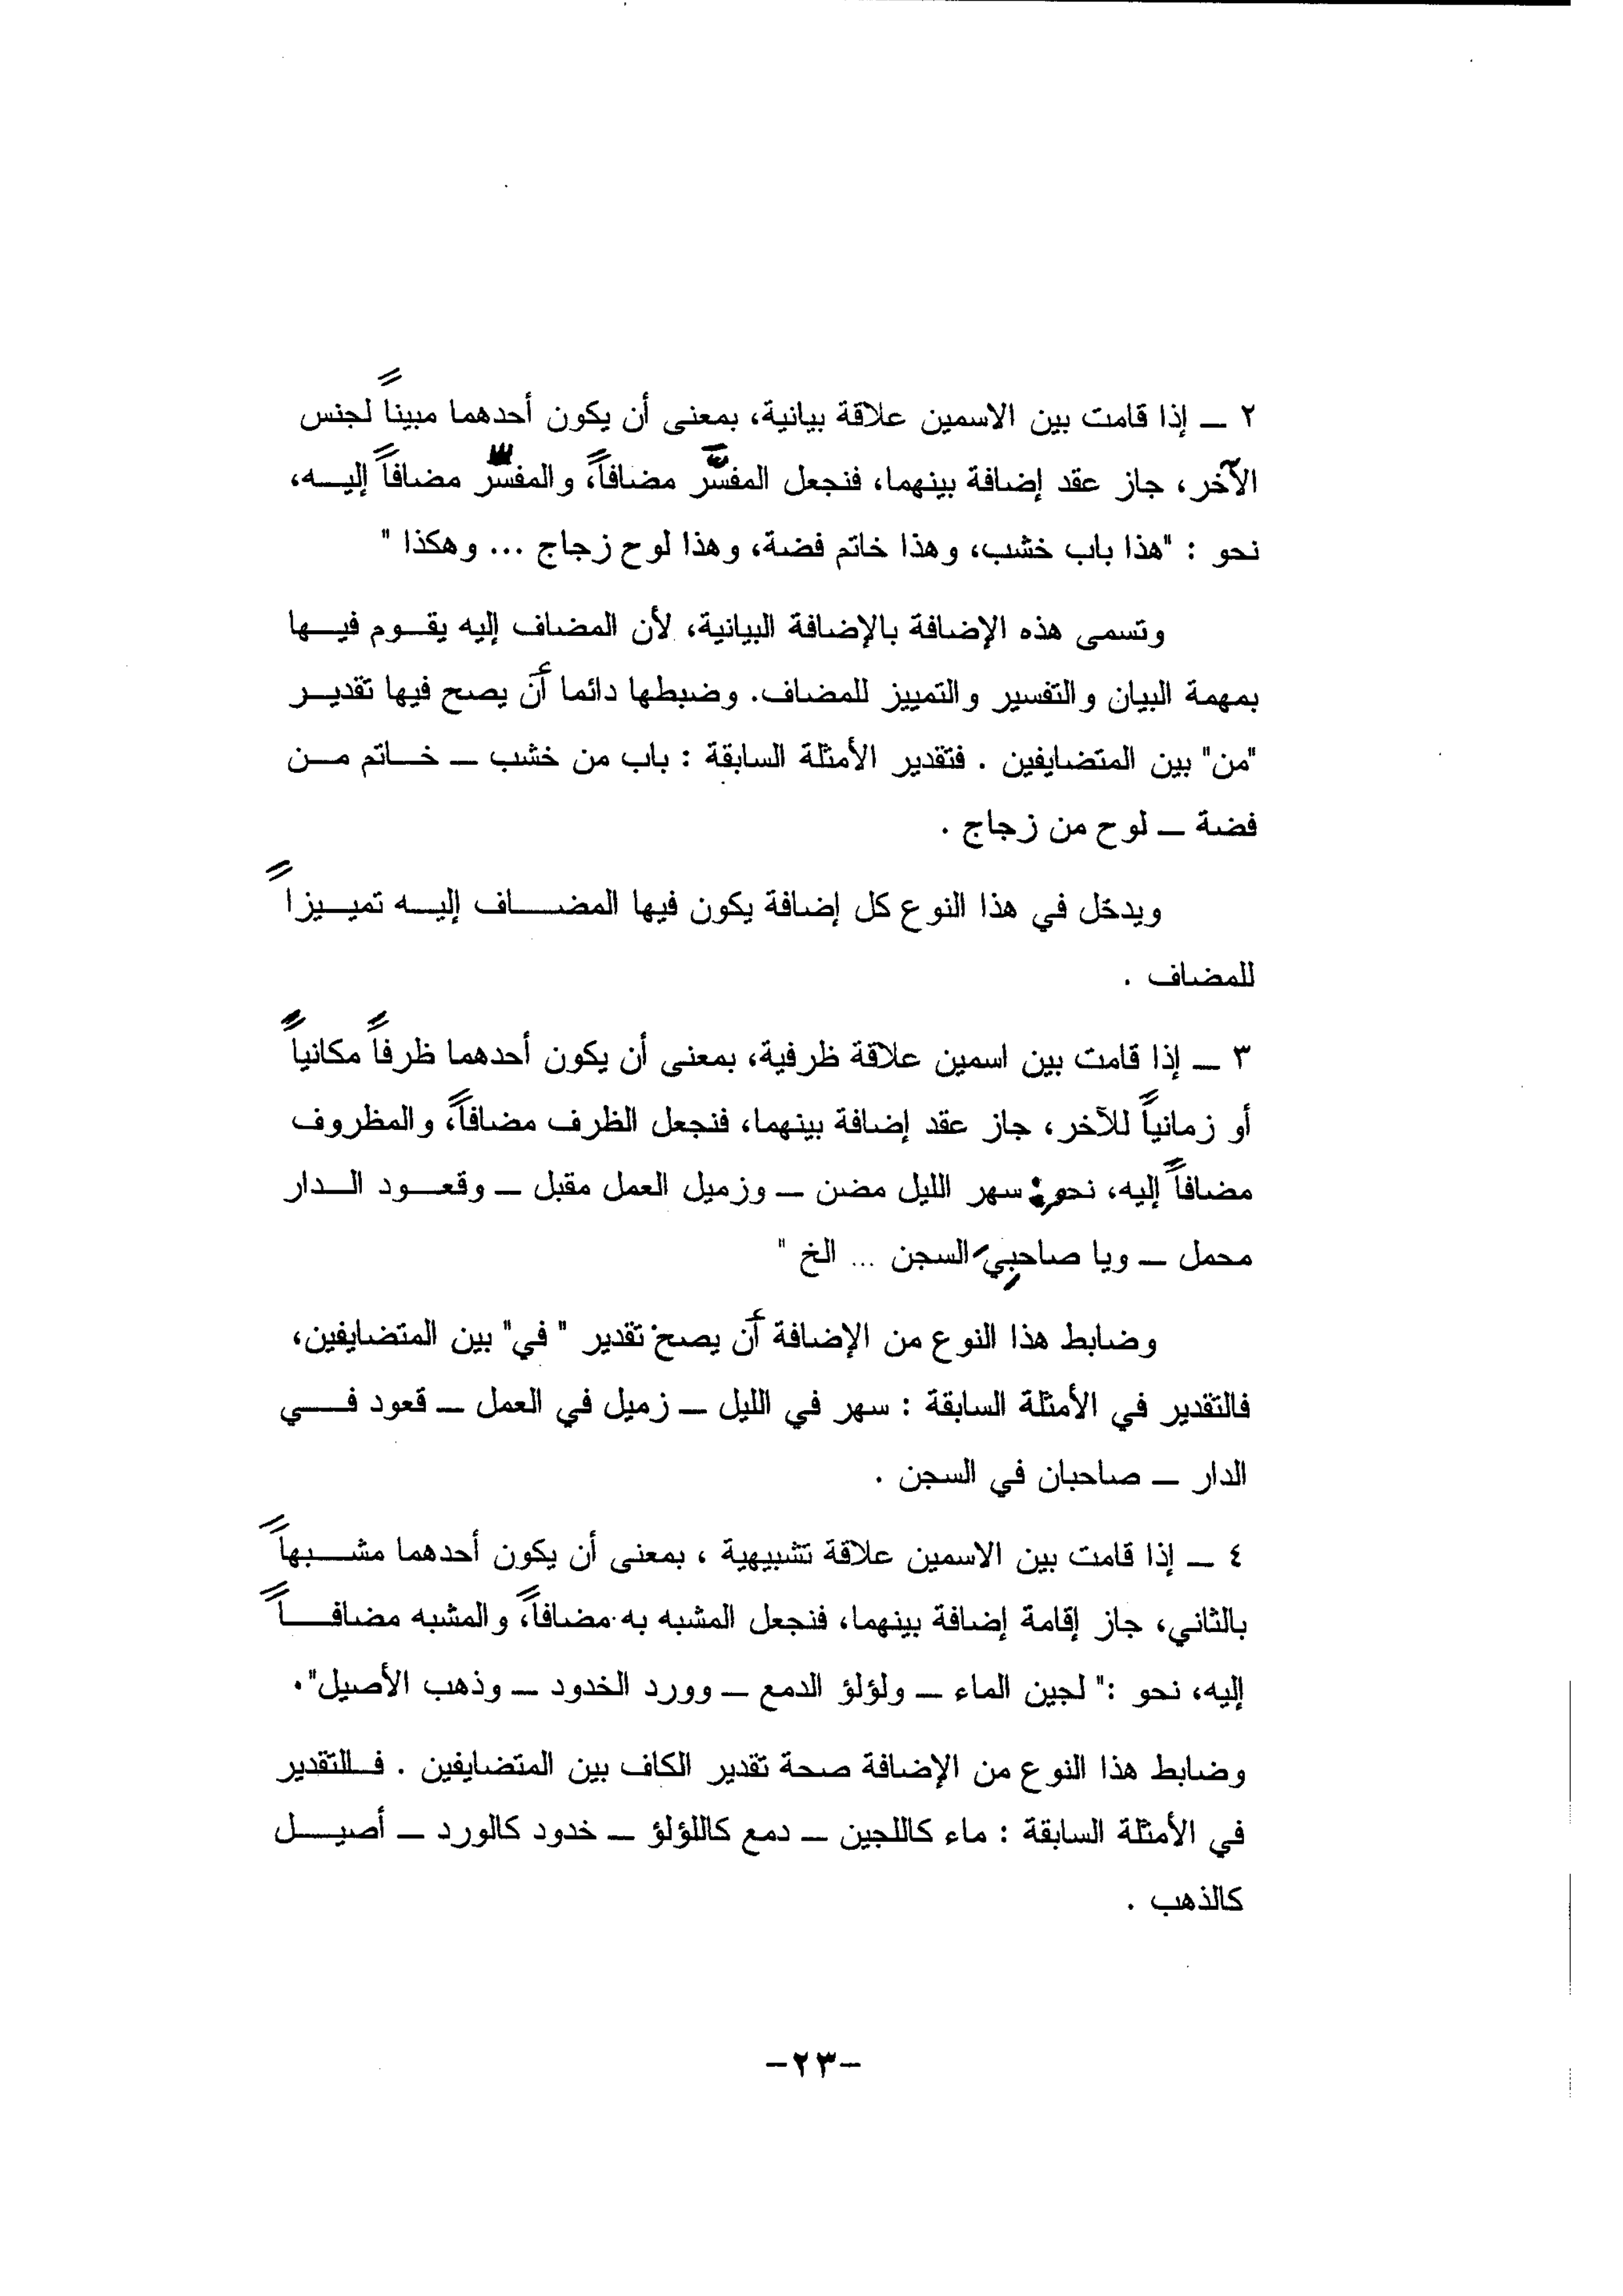 ٢ ــ إذا قامت بين الاسمين علاقة بيانية، بمعنى أن يكون أحدهما مبيناً لجنس
الآخر، جاز عقد إضافة بينهما، فنجعل المفسَّر مضافاً، والمفسِّر مضافاً إليــه،
نحو : "هذا باب خشب، وهذا خاتم فضة، وهذا لوح زجاج ... وهكذا "
وتسمى هذه الإضافة بالإضافة البيانية، لأن المضاف إليه يقــوم فيــها
بمهمة البيان والتفسير والتمييز للمضاف. وضبطها دائما أن يصح فيها تقديــر
"من" بين المتضايفين . فتقدير الأمثلة السابقة : باب من خشب ــ خــاتم مــن
فضة ــ لوح من زجاج .
ويدخل في هذا النوع كل إضافة يكون فيها المضــاف إليــه تميــيزاً
للمضاف .
٣ ــ إذا قامت بين اسمين علاقة ظرفية، بمعنى أن يكون أحدهما ظرفاً مكانياً
أو زمانياً للآخر، جاز عقد إضافة بينهما، فنجعل الظرف مضافاً، والمظروف
مضافاً إليه، نحو: سهر الليل مضن ــ وزميل العمل مقبل ــ وقعــود الــدار
محمل ــ ويا صاحبي السجن ... الخ "
وضابط هذا النوع من الإضافة أن يصح تقدير " في" بين المتضايفين،
فالتقدير في الأمثلة السابقة : سهر في الليل ــ زميل في العمل ــ قعود فــي
الدار ــ صاحبان في السجن .
٤ ــ إذا قامت بين الاسمين علاقة تشبيهية ، بمعنى أن يكون أحدهما مشــبهاً
بالثاني، جاز إقامة إضافة بينهما، فنجعل المشبه به مضافاً، والمشبه مضافــاً
إليه، نحو :" لجين الماء ــ ولؤلؤ الدمع ــ وورد الخدود ــ وذهب الأصيل".
وضابط هذا النوع من الإضافة صحة تقدير الكاف بين المتضايفين . فــالتقدير
في الأمثلة السابقة : ماء كاللجين ــ دمع كاللؤلؤ ــ خدود كالورد ــ أصيــل
كالذهب .
-٢٣-